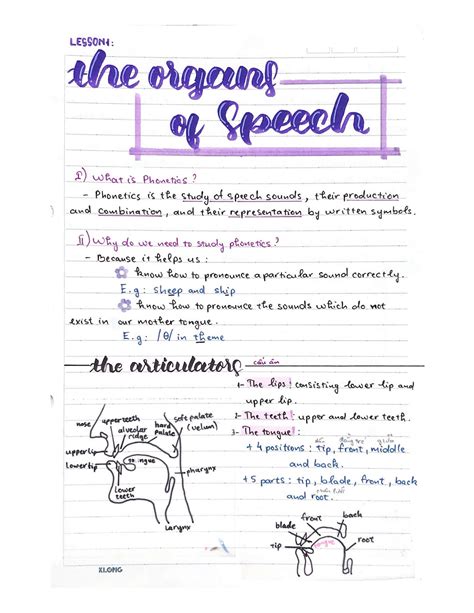 LESSON1:
the organs
of Speech
I) What is Phonetics?
- Phonetics is the study of speech sounds, their production
and combination, and their representation by written symbols.
II) Why do we need to study phonetics?
- Because it helps us:
know how to pronounce a particular sound correctly.
E.g: sheep and ship
know how to pronounce the sounds which do not
exist in our mother tongue.
E.g: /θ/ in theme
the articulators cấu âm
1- The lips: consisting lower lip and
upper lip.
2- The teeth: upper and lower teeth.
3- The tongue:
+ 4 positions: tip, front, middle
and back.
+ 5 parts: tip, blade, front, back
and root.
nose
upper teeth
alveolar
ridge
hard
palate
soft palate
(velum)
upper lip
lower lip
tongue
pharynx
lower
teeth
larynx
blade
front
back
tip
tongue
root
KLONG